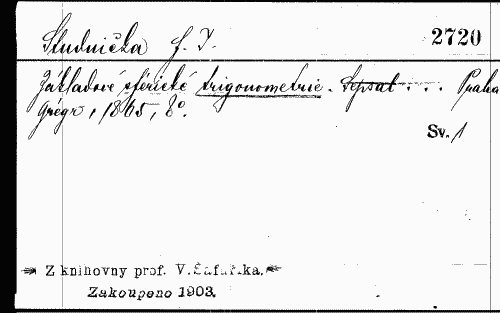 Studnička F. I.
2720
Základové sférické trigonometrie. Sepsal . . . Praha
Grégr, 1865, 8°.
Sv. 1
Z knihovny prof. V. Šafaříka.
Zakoupeno 1903.